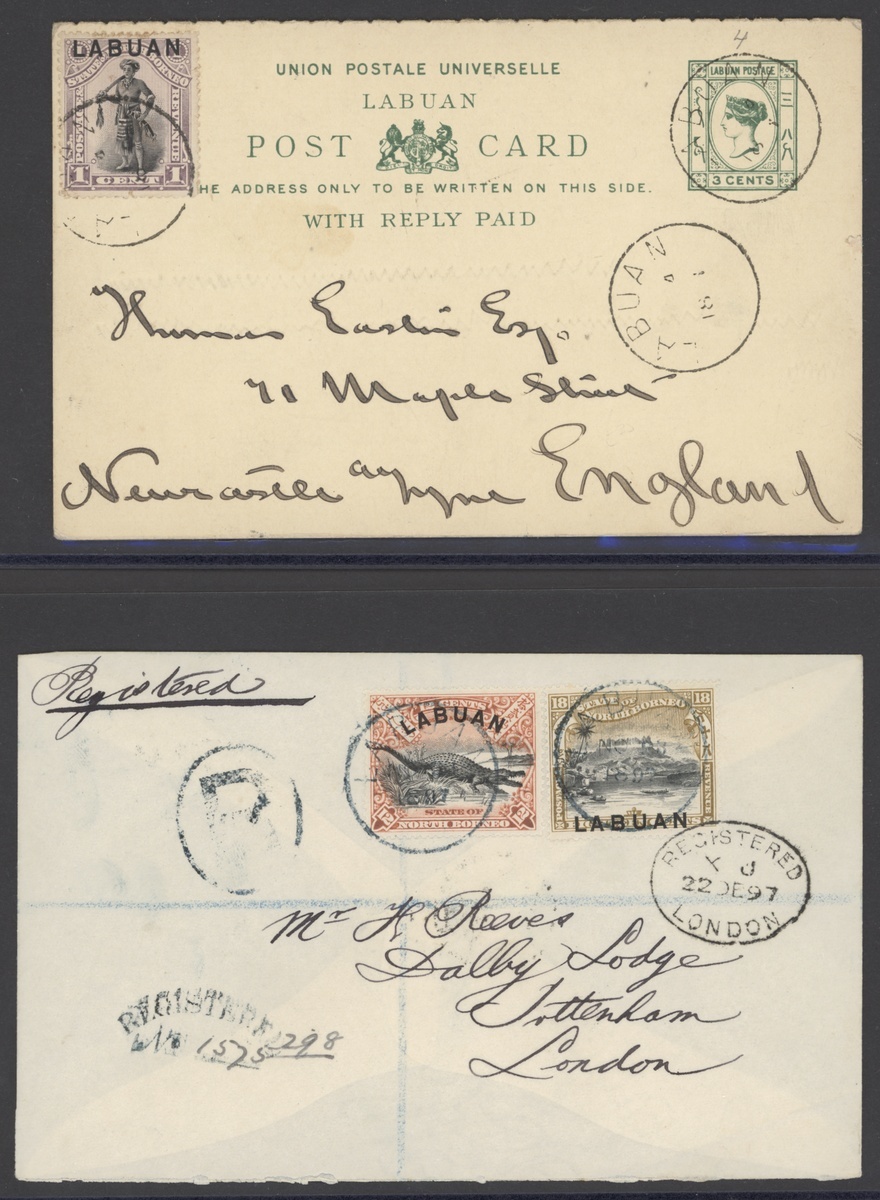 4
LABUAN
STATE OF NORTH BORNEO
POSTAGE & REVENUE
1 CENT 1
UNION POSTALE UNIVERSELLE
LABUAN
POST CARD
HE ADDRESS ONLY TO BE WRITTEN ON THIS SIDE.
WITH REPLY PAID
LABUAN POSTAGE
三
八
3 CENTS
LABUAN
Thomas Eastin Esq.
71 Maple Street
Newcastle England
Registered
CENTS
LABUAN
12 STATE OF 12
NORTH BORNEO
18 STATE OF 18
NORTH BORNEO
LABUAN
R
REGISTERED
22 DE 97
LONDON
Mr H Reeves
Dalby Lodge
Tottenham
London
REGISTERED
1575 1298